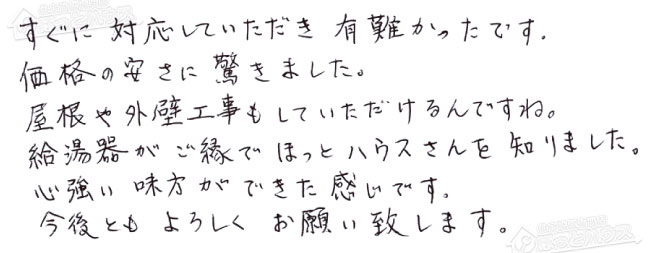 すぐに 対応していただき 有難かったです.
価格の安さに 驚きました。
屋根や外壁工事もしていただけるんですね。
給湯器が ご縁で ほっとハウスさんを 知りました。
心強い 味方ができた 感じです.
今後とも よろしく お願い致します。